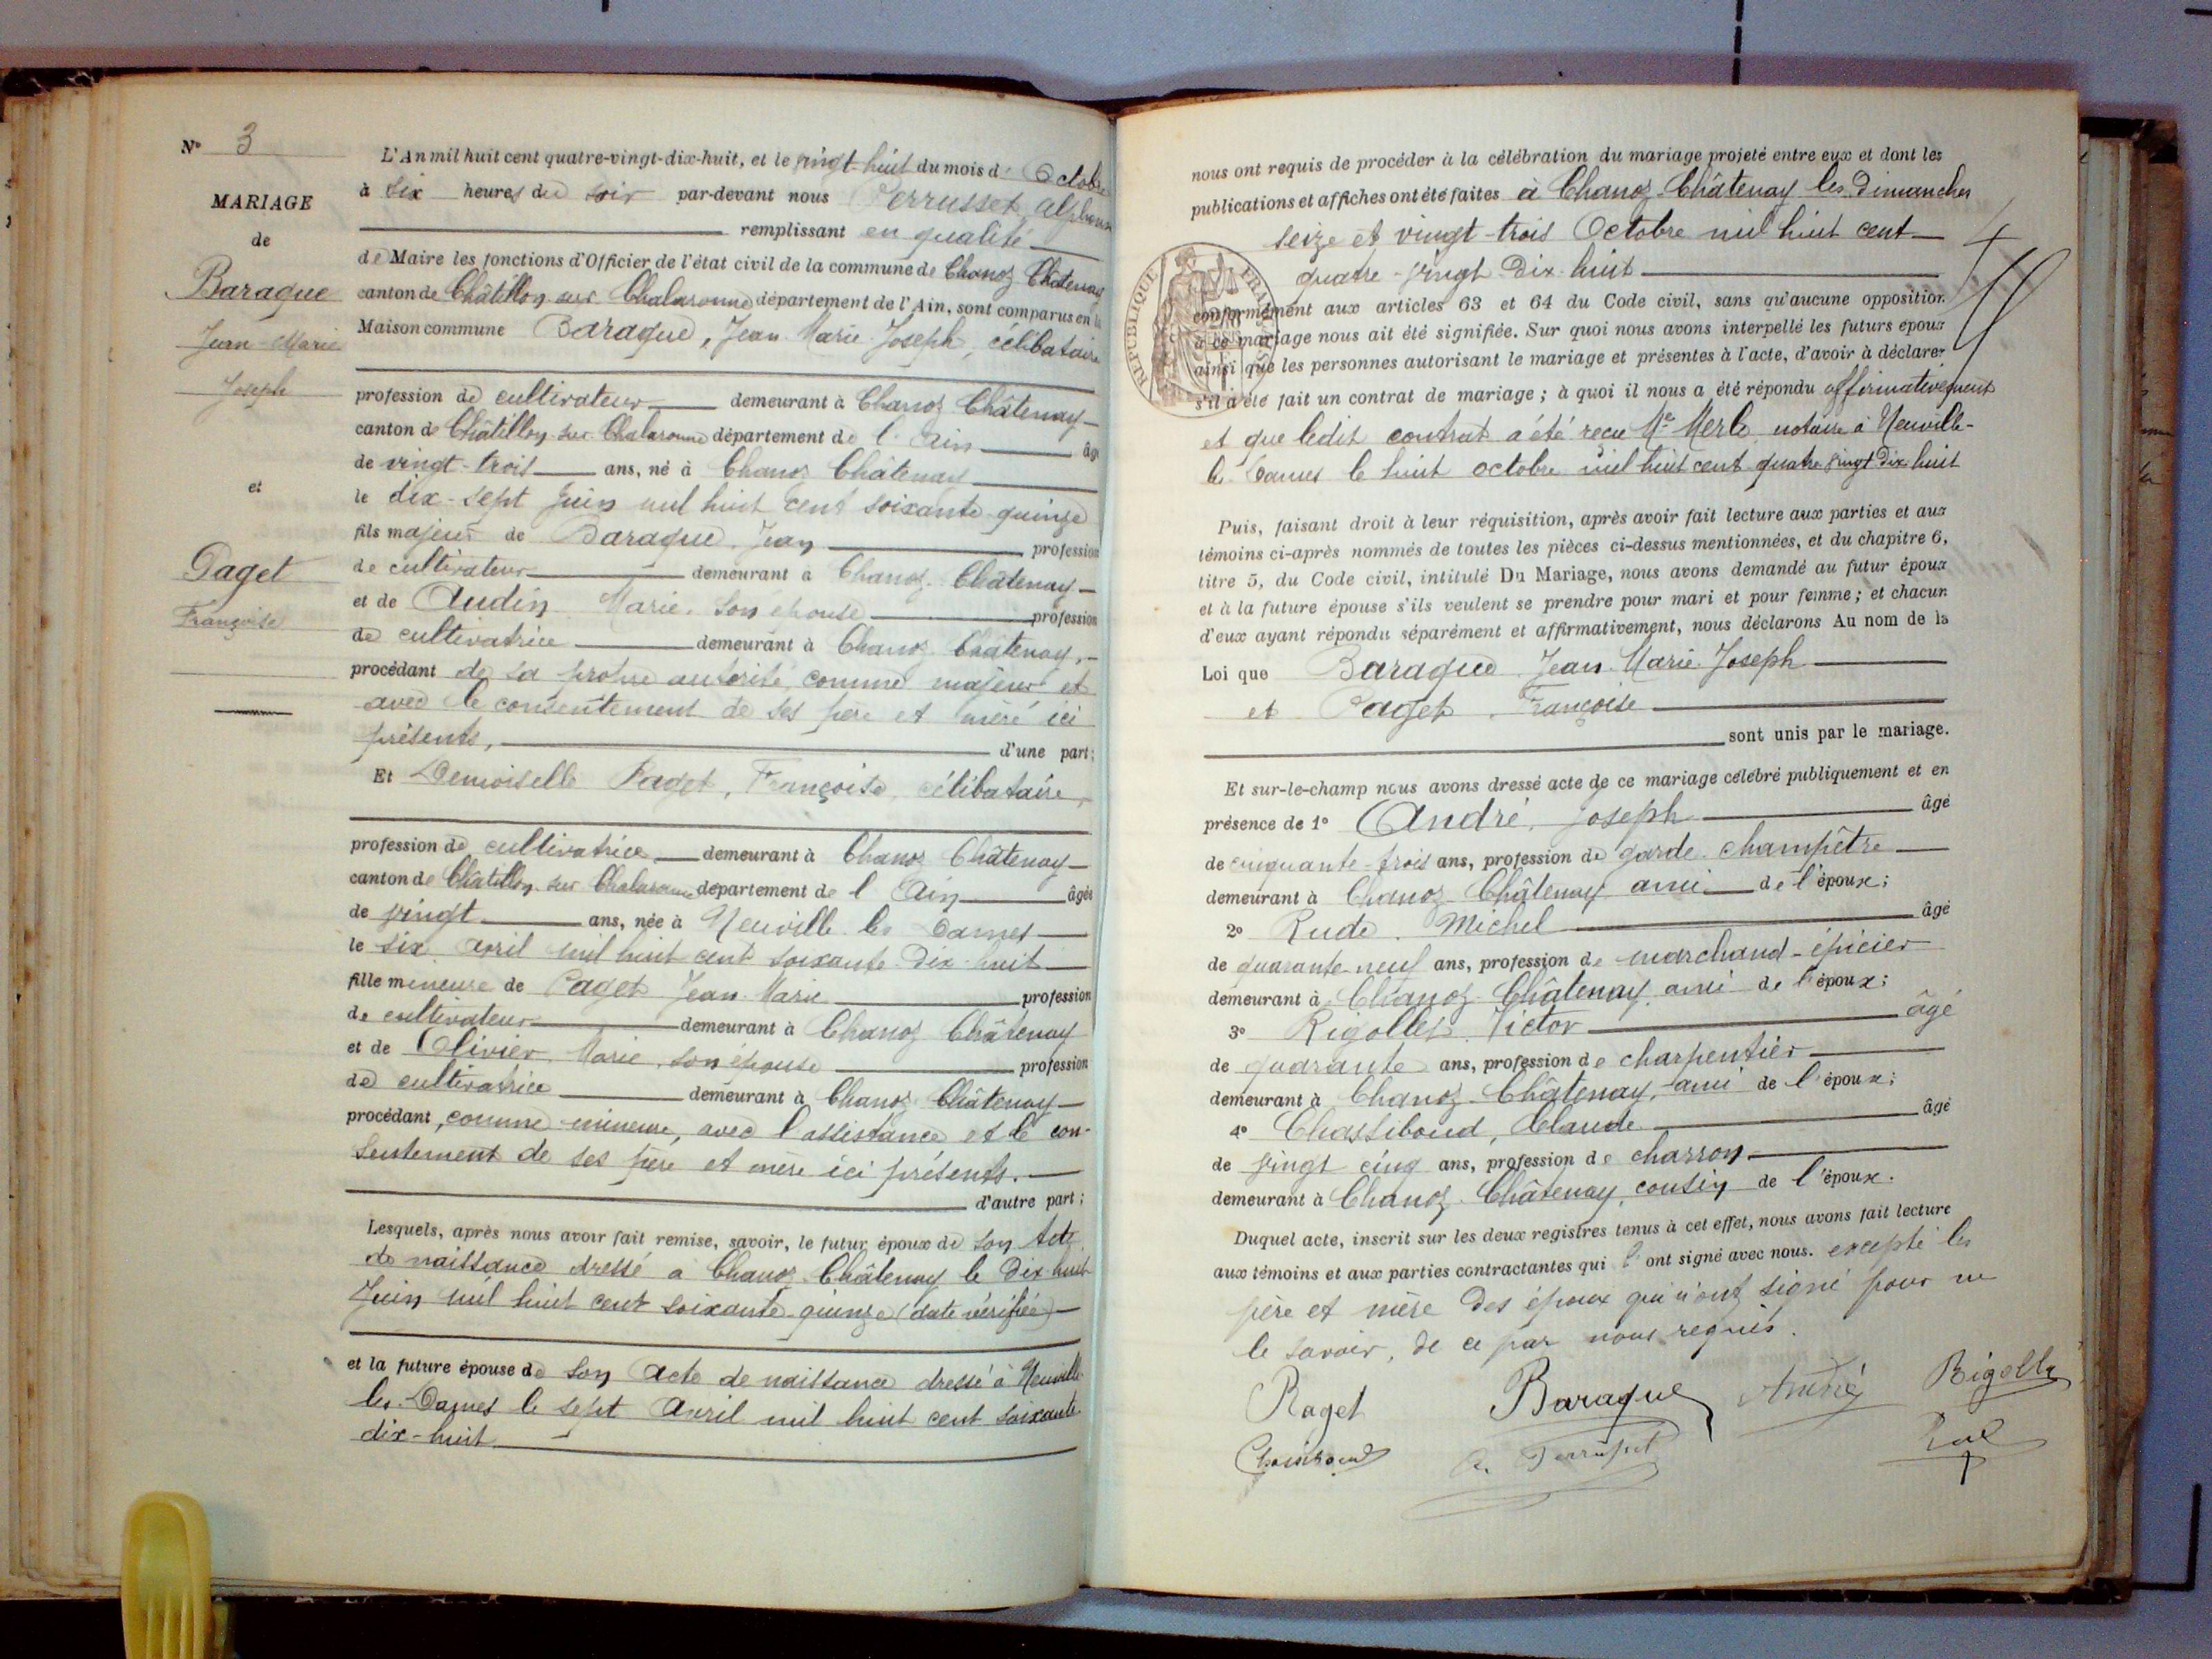 N° 3
MARIAGE
de
Baraque
Jean-Marie
Joseph
et
Paget
Françoise
L'An mil huit cent quatre-vingt-dix-huit, et le vingt-huit du mois d' Octobre
à six heures du soir par-devant nous Perrusset, Alphonse
remplissant en qualité
de Maire les fonctions d'Officier de l'état civil de la commune de Chanoz Châtenay
canton de Châtillon sur Chalaronne département de l'Ain, sont comparus en la
Maison commune Baraque, Jean Marie Joseph, célibataire
profession de cultivateur demeurant à Chanoz Châtenay
canton de Châtillon sur Chalaronne département de l'Ain âgé
de vingt-trois ans, né à Chanoz Châtenay
le dix-sept Juin mil huit cent soixante-quinze
fils majeur de Baraque, Jean profession
de cultivateur demeurant à Chanoz Châtenay
et de Audin Marie, son épouse profession
de cultivatrice demeurant à Chanoz Châtenay,
procédant de sa propre autorité, comme majeur et
avec le consentement de ses père et mère ici
présents, d'une part;
Et Demoiselle Paget, Françoise, célibataire,
profession de cultivatrice demeurant à Chanoz Châtenay
canton de Châtillon sur Chalaronne département de l'Ain âgée
de vingt ans, née à Neuville les Dames
le six avril mil huit cent soixante-dix-huit
fille mineure de Paget Jean Marie profession
de cultivateur demeurant à Chanoz Châtenay
et de Olivier, Marie, son épouse profession
de cultivatrice demeurant à Chanoz Châtenay
procédant, comme mineure, avec l'assistance et le con-
sentement de ses père et mère ici présents.
d'autre part;
Lesquels, après nous avoir fait remise, savoir, le futur époux de son Acte
de naissance dressé à Chanoz Châtenay le dix-huit
Juin mil huit cent soixante-quinze (date vérifiée)
et la future épouse de son Acte de naissance dressé à Neuville
les-Dames le sept Avril mil huit cent soixante
dix-huit
nous ont requis de procéder à la célébration du mariage projeté entre eux et dont les
publications et affiches ont été faites à Chanoz-Châtenay les Dimanches
seize et vingt-trois Octobre mil huit cent
quatre-vingt-dix-huit
conformément aux articles 63 et 64 du Code civil, sans qu'aucune opposition
à ce mariage nous ait été signifiée. Sur quoi nous avons interpellé les futurs époux
ainsi que les personnes autorisant le mariage et présentes à l'acte, d'avoir à déclarer
s'il a été fait un contrat de mariage; à quoi il nous a été répondu affirmativement
et que ledit contrat a été reçu Me Merle, notaire à Neuville-
les-Dames le huit octobre mil huit cent quatre vingt dix huit
Puis, faisant droit à leur réquisition, après avoir fait lecture aux parties et aux
témoins ci-après nommés de toutes les pièces ci-dessus mentionnées, et du chapitre 6,
titre 5, du Code civil, intitulé Du Mariage, nous avons demandé au futur époux
et à la future épouse s'ils veulent se prendre pour mari et pour femme; et chacun
d'eux ayant répondu séparément et affirmativement, nous déclarons Au nom de la
Loi que Baraque Jean Marie Joseph
et Paget, Françoise
sont unis par le mariage.
Et sur-le-champ nous avons dressé acte de ce mariage célébré publiquement et en
présence de 1° André, Joseph âgé
de cinquante-trois ans, profession de garde-champêtre
demeurant à Chanoz-Châtenay ami de l'époux;
2° Rude, Michel âgé
de quarante-neuf ans, profession de marchand-épicier
demeurant à Chanoz-Châtenay, ami de l'époux;
3° Rigollet, Victor âgé
de quarante ans, profession de charpentier
demeurant à Chanoz-Châtenay, ami de l'époux;
4° Chassiboud, Claude âgé
de vingt cinq ans, profession de charron
demeurant à Chanoz-Châtenay, cousin de l'époux.
Duquel acte, inscrit sur les deux registres tenus à cet effet, nous avons fait lecture
aux témoins et aux parties contractantes qui l'ont signé avec nous. excepté les
père et mère des époux qui n'ont signé pour ne
le savoir, de ce par nous requis.
Paget Baraque André Rigollet
Chassiboud A. Perrusset
REPUBLIQUE